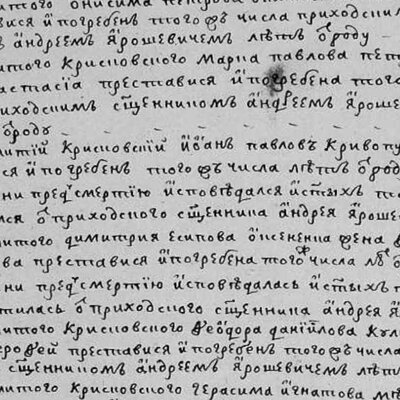 того онисима петрова
вися и погребенъ того же числа приходским
андреемъ ярошевичемъ лѣтъ ѿ роду
итого крисновского марна павлова пет
астасїа преставися и погребена того
риходскимъ сщ҃енникомъ андреемъ яроше
ѿ роду
митїй крисновскїй иванъ павловъ кривопу
ся и погребенъ того жъ числа лѣтъ ѿ род
ни пред смертїю исповѣдался и ст҃ыхъ т
лся ѿ приходского сщ҃енника андрея яроше
итого димитрия есипова жена
ва преставися и погребена того числа лѣ
ни пред смертїю исповѣдалась и ст҃ыхъ
тилась ѿ приходского сщ҃енника андрея я
итого крисновского ѳеодора данїилова кул
ероѳей преставися и погребенъ того жъ числа
сщ҃енникомъ андреемъ ярошевичемъ лѣт
митого крисновского герасима игнатова